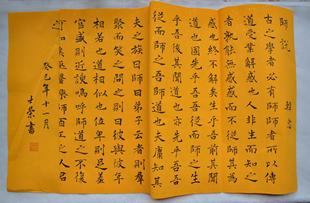 師說 韓愈
古之學者必有師師者所以傳
道受業解惑也人非生而知之
者孰能無惑惑而不從師其為
惑也終不解矣生乎吾前其聞
道也固先乎吾吾從而師之生
乎吾後其聞道也亦先乎吾吾
從而師之吾師道也夫庸知其
夫之族曰師曰弟子云者則群
聚而笑之問之則曰彼與彼年
相若也道相似也位卑則足羞
官盛則近諛嗚呼師道之不復
可知矣巫醫樂師百工之人君
癸巳年十一月
士榮書